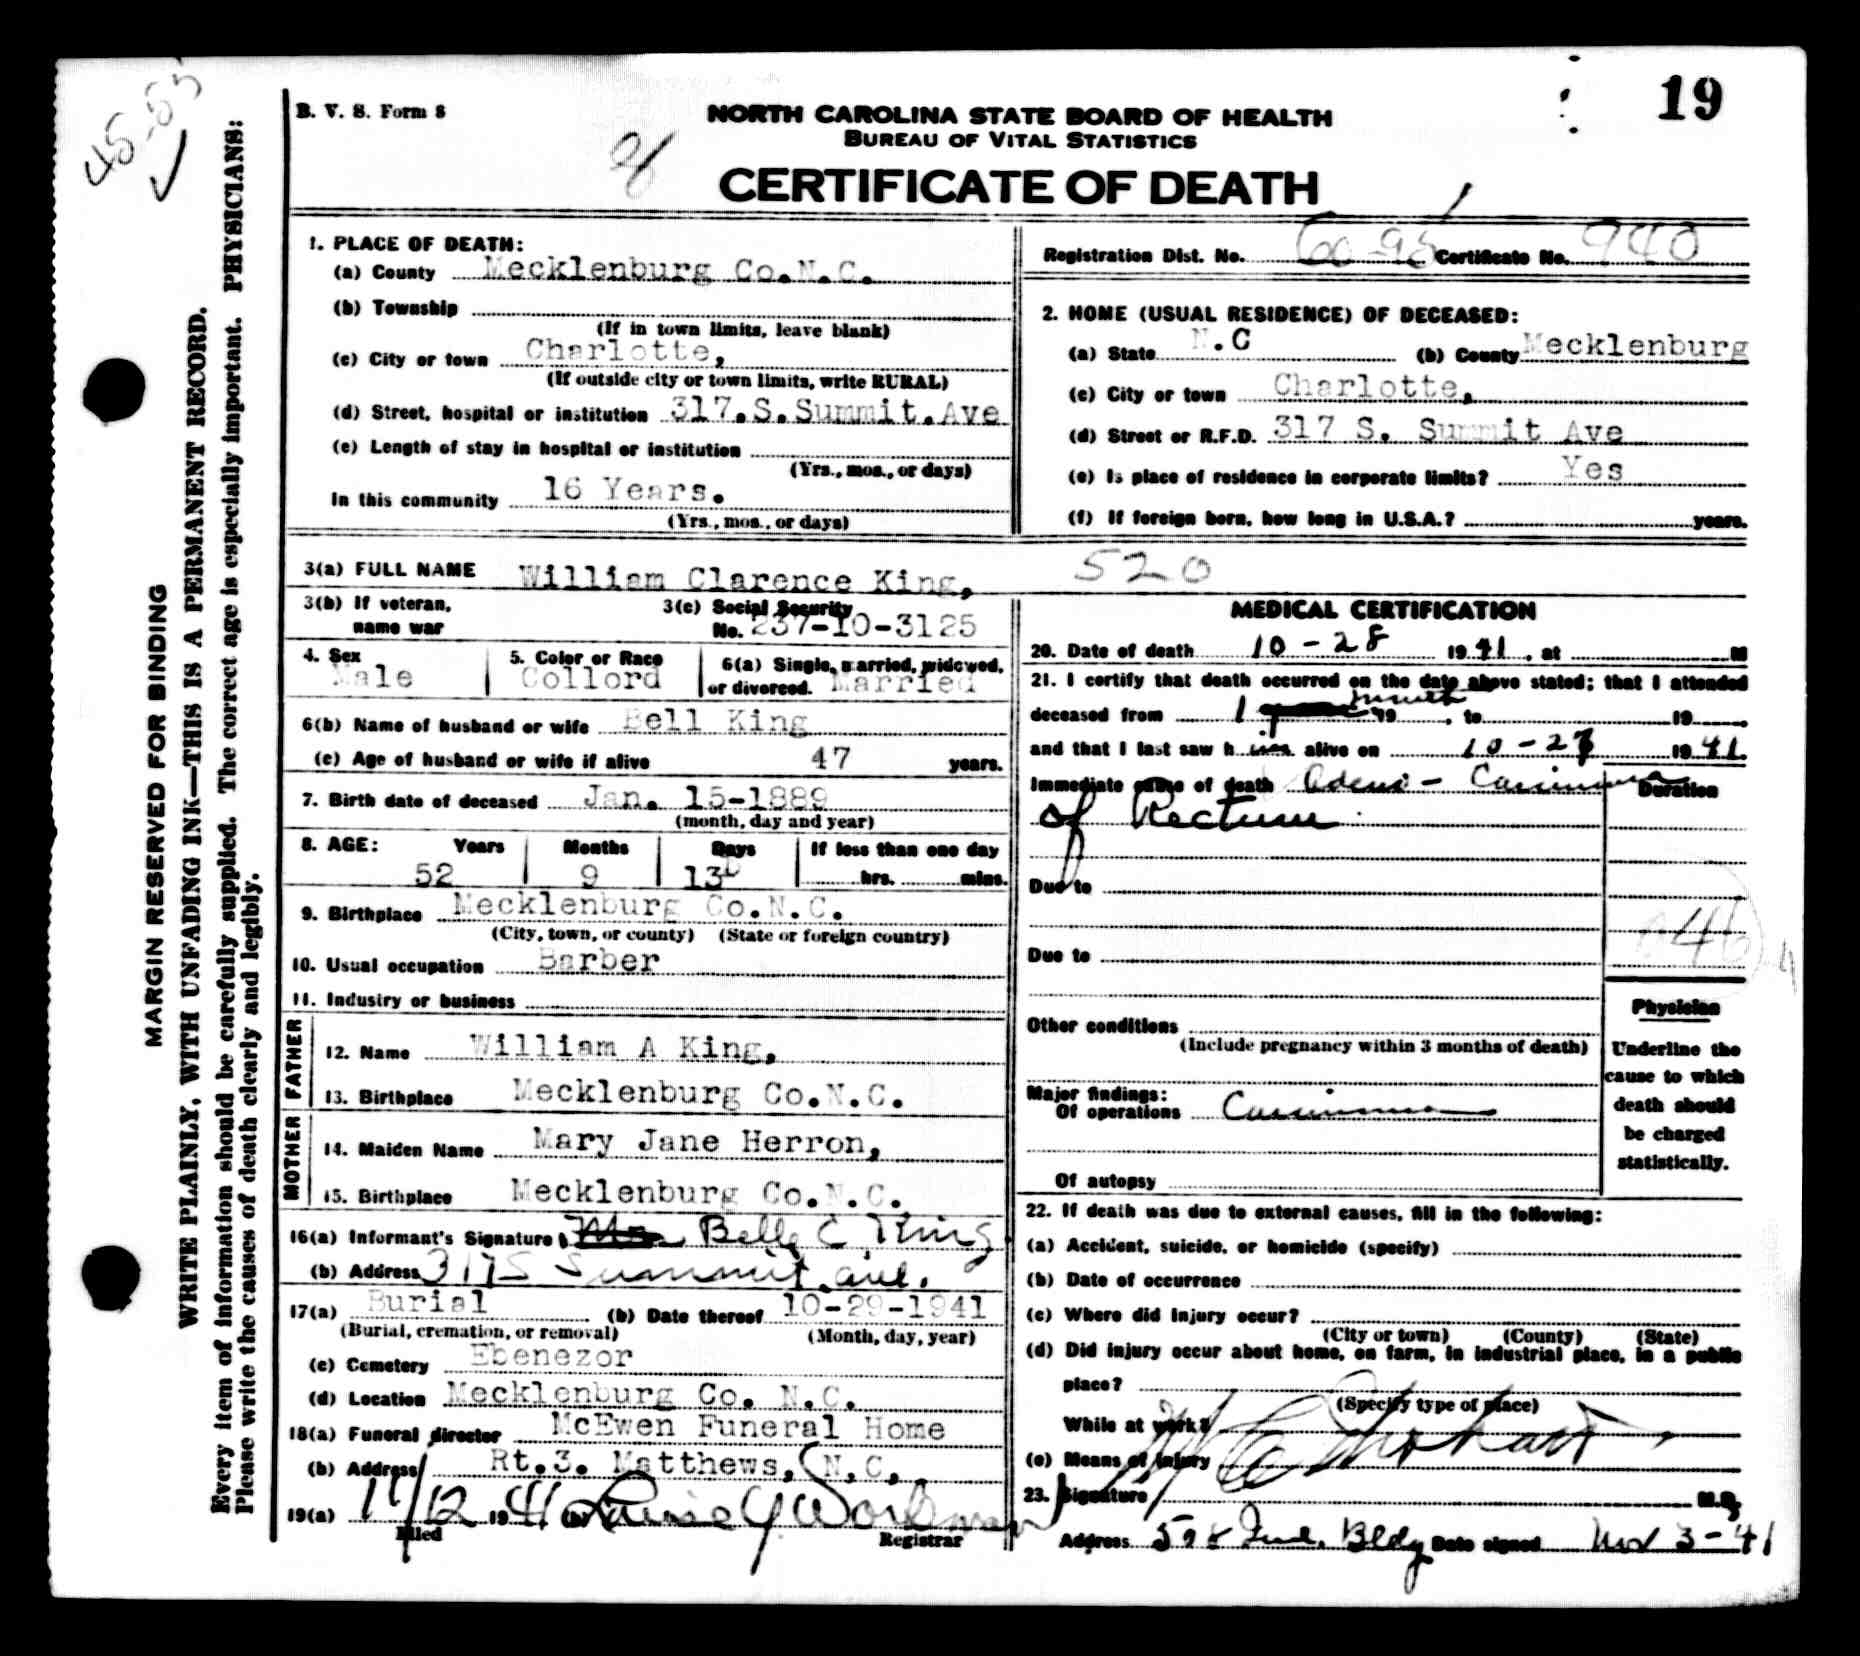 19
45-55
B. V. S. Form 8
NORTH CAROLINA STATE BOARD OF HEALTH
BUREAU OF VITAL STATISTICS
CERTIFICATE OF DEATH
MARGIN RESERVED FOR BINDING
WRITE PLAINLY, WITH UNFADING INK—THIS IS A PERMANENT RECORD.
Every item of information should be carefully supplied. The correct age is especially important. PHYSICIANS:
Please write the causes of death clearly and legibly.
1. PLACE OF DEATH:
(a) County Mecklenburg Co.N.C.
(b) Township
(If in town limits, leave blank)
(c) City or town Charlotte,
(If outside city or town limits, write RURAL)
(d) Street, hospital or institution 317.S.Summit.Ave
(e) Length of stay in hospital or institution
(Yrs., mos., or days)
In this community 16 Years.
(Yrs., mos., or days)
Registration Dist. No. 60-95 Certificate No. 940
2. HOME (USUAL RESIDENCE) OF DECEASED:
(a) State N.C (b) County Mecklenburg
(c) City or town Charlotte,
(d) Street or R.F.D. 317 S. Summit Ave
(e) Is place of residence in corporate limits? Yes
(f) If foreign born, how long in U.S.A.? years.
3(a) FULL NAME William Clarence King, 520
3(b) If veteran, name war
3(c) Social Security No. 237-10-3125
4. Sex Male
5. Color or Race Collord
6(a) Single, married, widowed, or divorced. Married
6(b) Name of husband or wife Bell King
(c) Age of husband or wife if alive 47 years.
7. Birth date of deceased Jan. 15-1889
(month, day and year)
8. AGE: Years Months Days If less than one day
52 9 13 hrs. mins.
9. Birthplace Mecklenburg Co.N.C.
(City, town, or county) (State or foreign country)
10. Usual occupation Barber
11. Industry or business
FATHER
12. Name William A King,
13. Birthplace Mecklenburg Co.N.C.
MOTHER
14. Maiden Name Mary Jane Herron,
15. Birthplace Mecklenburg Co.N.C.
16(a) Informant's Signature Belle C King
(b) Address 317 S Summit ave.
17(a) Burial (b) Date thereof 10-29-1941
(Burial, cremation, or removal) (Month, day, year)
(c) Cemetery Ebenezor
(d) Location Mecklenburg Co. N.C.
18(a) Funeral director McEwen Funeral Home
(b) Address Rt.3. Matthews, N.C,
19(a) 11/12 1941 (b) Louise Y Workman
Filed Registrar
MEDICAL CERTIFICATION
20. Date of death 10-28 1941, at M
21. I certify that death occurred on the date above stated; that I attended
deceased from 1 month 19 , to 19 ,
and that I last saw him alive on 10-27 1941.
Immediate cause of death Adeno-Carcinoma
of Rectum
Duration
Due to
046
Due to
Other conditions
(Include pregnancy within 3 months of death)
Major findings:
Of operations Carcinoma
Of autopsy
Physician
Underline the
cause to which
death should
be charged
statistically.
22. If death was due to external causes, fill in the following:
(a) Accident, suicide, or homicide (specify)
(b) Date of occurrence
(c) Where did injury occur?
(City or town) (County) (State)
(d) Did injury occur about home, on farm, in industrial place, in a public
place?
(Specify type of place)
While at work?
(e) Means of injury
23. Signature M.D.
Address Bldg Date signed Nov 3-41